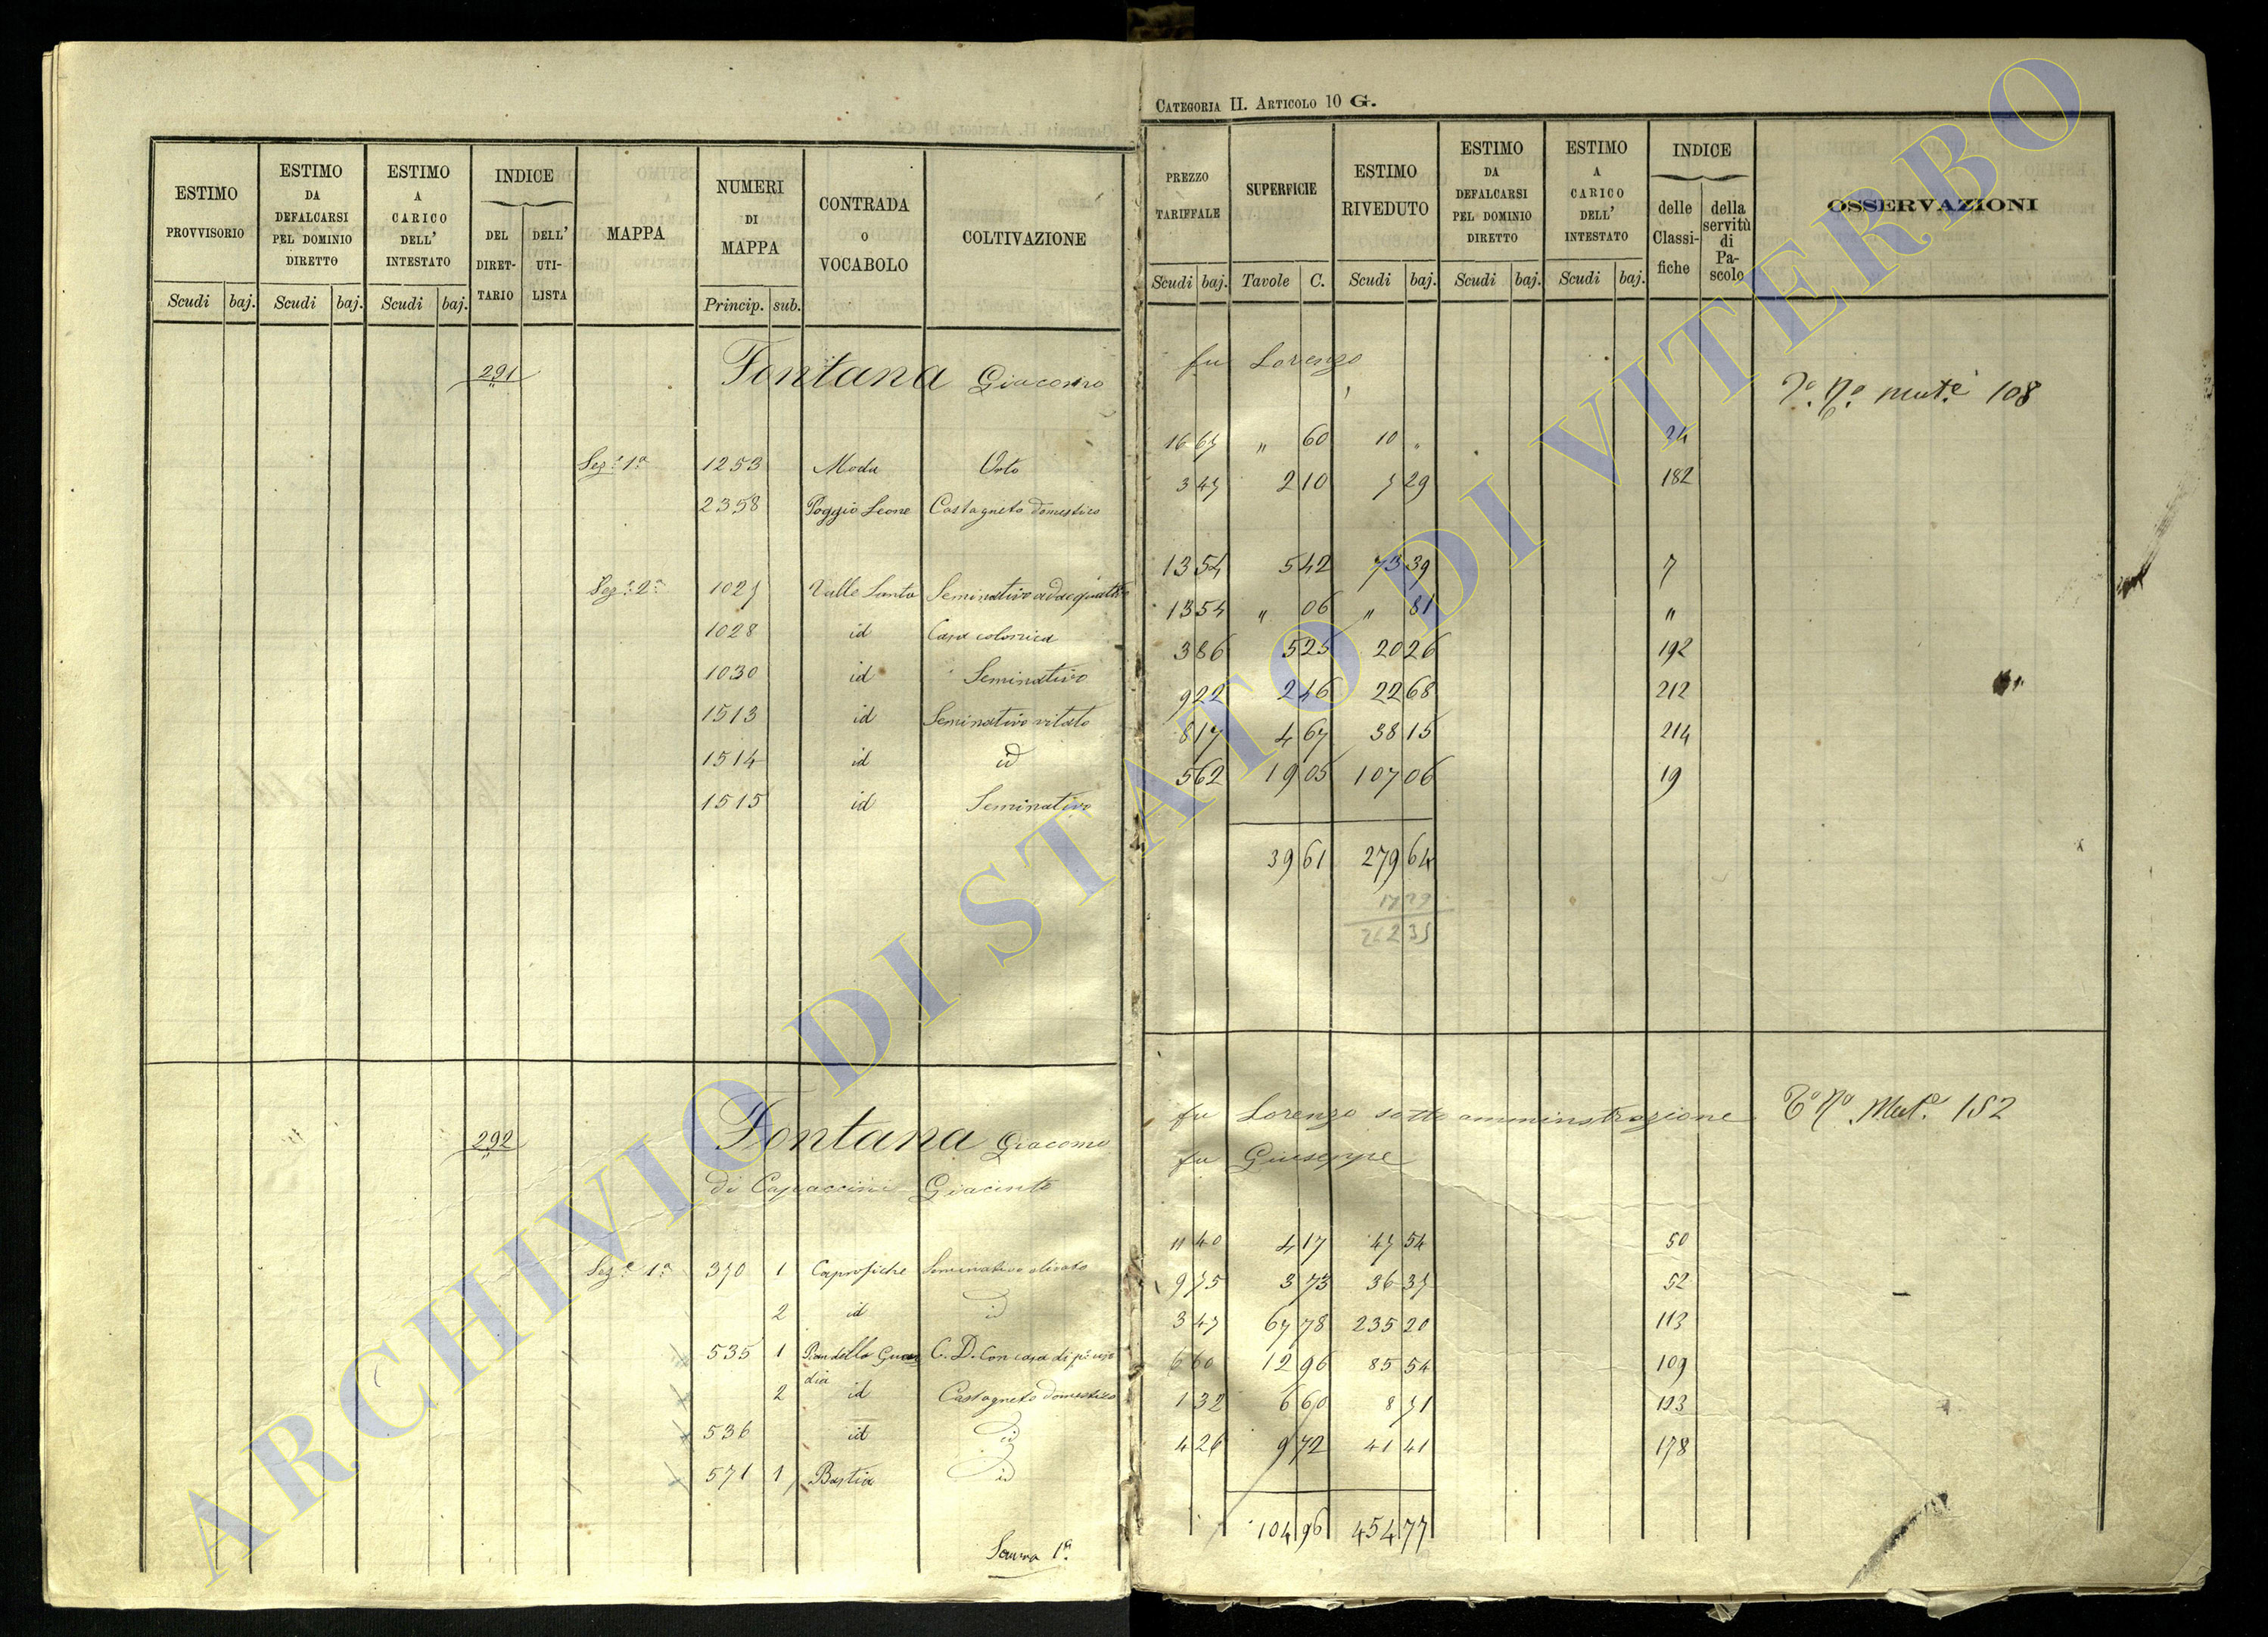 CATEGORIA II. ARTICOLO 10 G.
ESTIMO PROVVISORIO Scudi baj.
ESTIMO DA DEFALCARSI PEL DOMINIO DIRETTO Scudi baj.
ESTIMO A CARICO DELL' INTESTATO Scudi baj.
INDICE DEL DIRET-TARIO DELL' UTI-LISTA
MAPPA
NUMERI DI MAPPA Princip. sub.
CONTRADA O VOCABOLO
COLTIVAZIONE
PREZZO TARIFFALE Scudi baj.
SUPERFICIE Tavole C.
ESTIMO RIVEDUTO Scudi baj.
ESTIMO DA DEFALCARSI PEL DOMINIO DIRETTO Scudi baj.
ESTIMO A CARICO DELL' INTESTATO Scudi baj.
INDICE delle Classi-fiche della servitù di Pa-scolo
OSSERVAZIONI
291 Fontana Giacomo fu Lorenzo
108
Sez.e 1a 1253 Moda Orto 16 67 " 60 10 " 24
2358 Poggio Leone Castagneto domestico 3 47 2 10 7 29 182
Sez.e 2a 1027 Valle Santa Seminativo adacquativo 13 54 5 42 73 39 7
1028 id Casa colonica 13 54 " 06 " 81 "
1030 id Seminativo 3 86 5 25 20 26 192
1513 id Seminativo vitato 9 22 2 46 22 68 212
1514 id id 8 17 4 67 38 15 214
1515 id Seminativo 5 62 19 05 107 06 19
39 61 279 64
17 29
262 35
292 Fontana Giacomo fu Lorenzo sotto amministrazione
To No Mut.e 152
di Capaccini Giacinto fu Giuseppe
Sez.e 1a 370 1 Caprofiche Seminativo olivato 11 40 4 17 47 54 50
2 id id 9 75 3 73 36 37 52
535 1 Pian della Guardia C. D. Con casa di po uso 3 47 67 78 235 20 113
2 id Castagneto domestico 6 60 12 96 85 54 109
536 id id 1 32 6 60 8 71 193
571 1 Bastia id 4 26 9 72 41 41 178
Somma 1a 104 96 454 77
ARCHIVIO DI STATO DI VITERBO